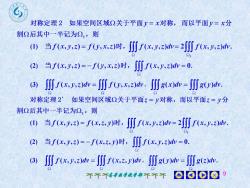 对称定理2 如果空间区域Ω关于平面y = x对称，而以平面y = x分
割Ω后其中一半记为Ω₁，则
(1) 当f(x, y, z) = f(y, x, z)时，∭_Ω f(x, y, z)dv = 2∭_Ω₁ f(x, y, z)dv.
(2) 当f(x, y, z) = −f(y, x, z)时，∭_Ω f(x, y, z)dv = 0.
(3) ∭_Ω f(x, y, z)dv = ∭_Ω f(y, x, z)dv, ∭_Ω g(x)dv = ∭_Ω g(y)dv.
对称定理2' 如果空间区域Ω关于平面z = y对称，而以平面z = y分
割Ω后其中一半记为Ω₁，则
(1) 当f(x, y, z) = f(x, z, y)时，∭_Ω f(x, y, z)dv = 2∭_Ω₁ f(x, y, z)dv.
(2) 当f(x, y, z) = −f(x, z, y)时，∭_Ω f(x, y, z)dv = 0.
(3) ∭_Ω f(x, y, z)dv = ∭_Ω f(x, z, y)dv, ∭_Ω g(y)dv = ∭_Ω g(z)dv.
9